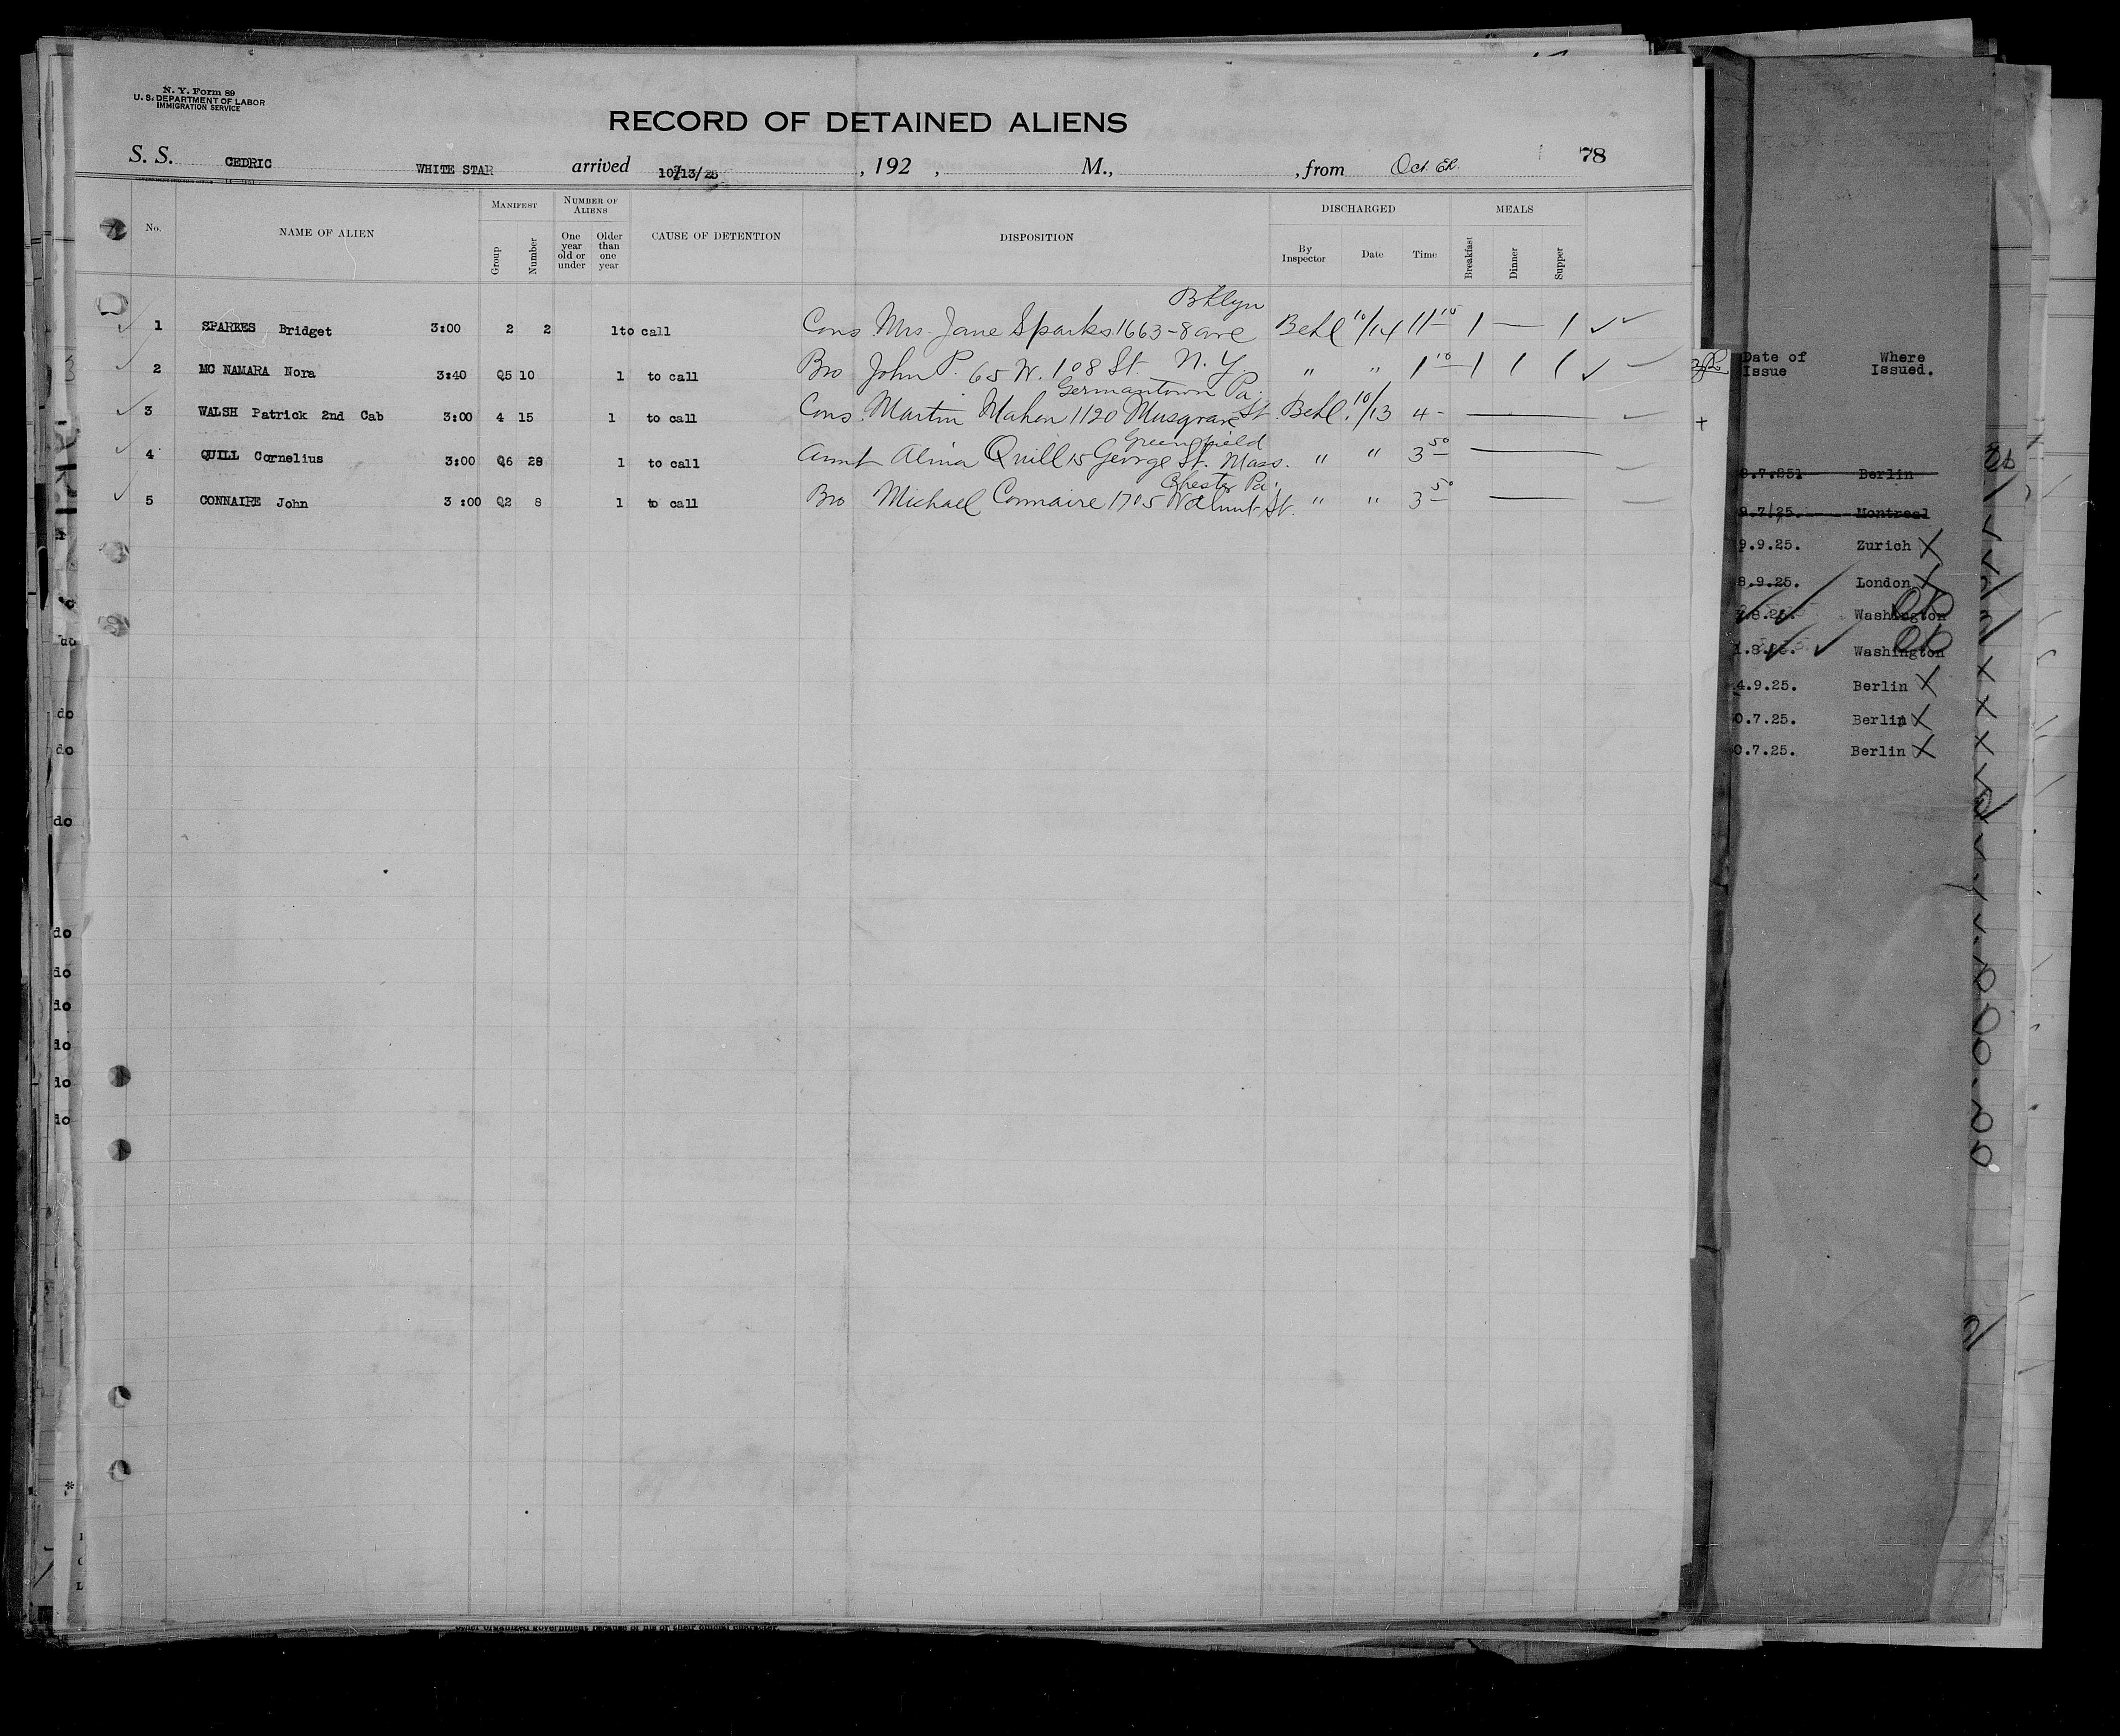 N. Y. Form 89
U. S. DEPARTMENT OF LABOR
IMMIGRATION SERVICE
RECORD OF DETAINED ALIENS
S. S. CEDRIC WHITE STAR arrived 10/13/25 , 192 , M., , from 78
No. NAME OF ALIEN MANIFEST Group Number NUMBER OF ALIENS One year old or under Older than one year CAUSE OF DETENTION DISPOSITION DISCHARGED By Inspector Date Time MEALS Breakfast Dinner Supper
Bklyn
1 SPARKES Bridget 3:00 2 2 1 to call Cons Mrs. Jane Sparks 1663-8 ave Behl 10/14 11 10 1 — 1 ✓ ✓
2 MC NAMARA Nora 3:40 Q5 10 1 to call Bro John P. 65 W. 108 St. N. Y. " " 1 10 1 1 1 ✓
Germantown Pa.
3 WALSH Patrick 2nd Cab 3:00 4 15 1 to call Cons. Martin Mahon 1120 Musgrave St. Behl. 10/13 4 -
Greenfield
4 QUILL Cornelius 3:00 Q6 28 1 to call Aunt Quill 15 George St. Mass. " " 3 50
Chester Pa.
5 CONNAIRE John 3 :00 Q2 8 1 to call Bro Michael Connaire 1705 Walnut St. " " 3 50
Date of Issue Where Issued.
Berlin
9.7/25. Montreal
9.9.25. Zurich X
8.9.25. London X
Washington
Washington
4.9.25. Berlin X
0.7.25. Berlin X
0.7.25. Berlin X
do
do
do
do
do